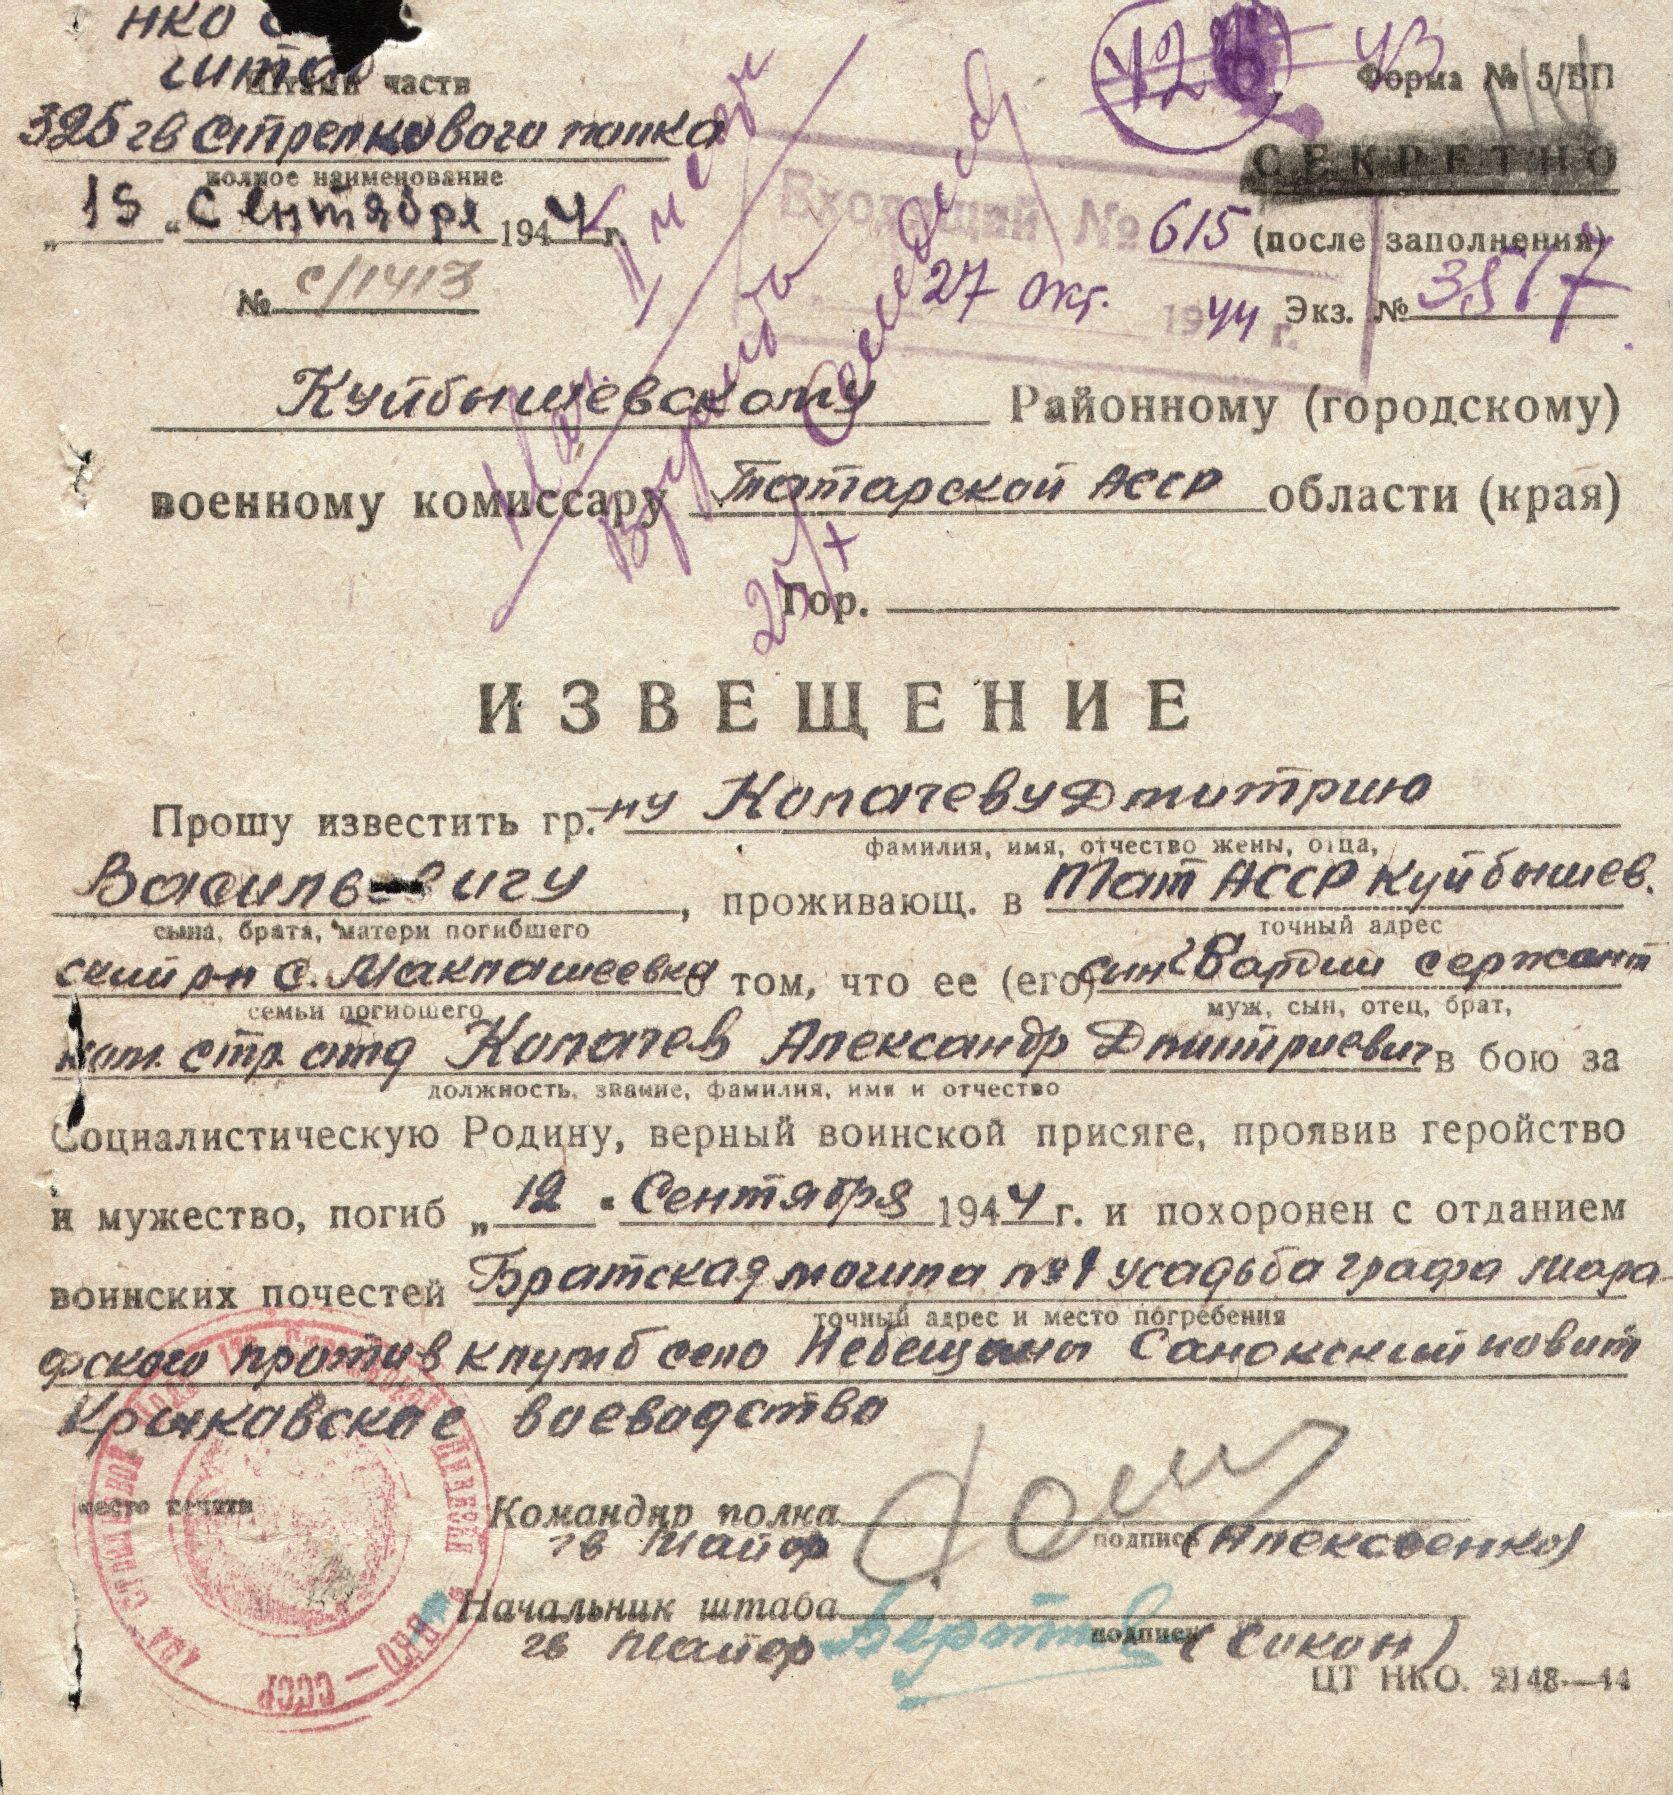 НКО
штаб
Штамп части
325 гв Стрелкового полка
полное наименование
„15“ Сентября 1944 г.
№ с/1413
Форма № 5/БП
СЕКРЕТНО
(после заполнения)
Экз. № 3517
Входящий № 615
27 Окт. 1944 г.
Куйбышевскому Районному (городскому)
военному комиссару Татарской АССР области (края)
Гор.
ИЗВЕЩЕНИЕ
Прошу известить гр.-ну Колачеву Дмитрию
фамилия, имя, отчество жены, отца,
Васильевичу, проживающ. в Тат АССР Куйбышев.
сына, брата, матери погибшего
точный адрес
ский р-н с. Маклашеевка о том, что ее (его) сын Гвардии сержант
семьи погибшего
муж, сын, отец, брат,
ком. стр. отд Колачев Александр Дмитриевич в бою за
должность, звание, фамилия, имя и отчество
Социалистическую Родину, верный воинской присяге, проявив геройство
и мужество, погиб „12“ Сентября 1944 г. и похоронен с отданием
воинских почестей Братская могила №1 усадьба графа Мора-
точный адрес и место погребения
фского против клумб село Небещаны Санокский повит
Краковское воеводство
место печати
Командир полка
гв Майор
подпись (Алексеенко)
Начальник штаба
гв Майор
подпись (Сикон)
ЦТ НКО. 2148—44